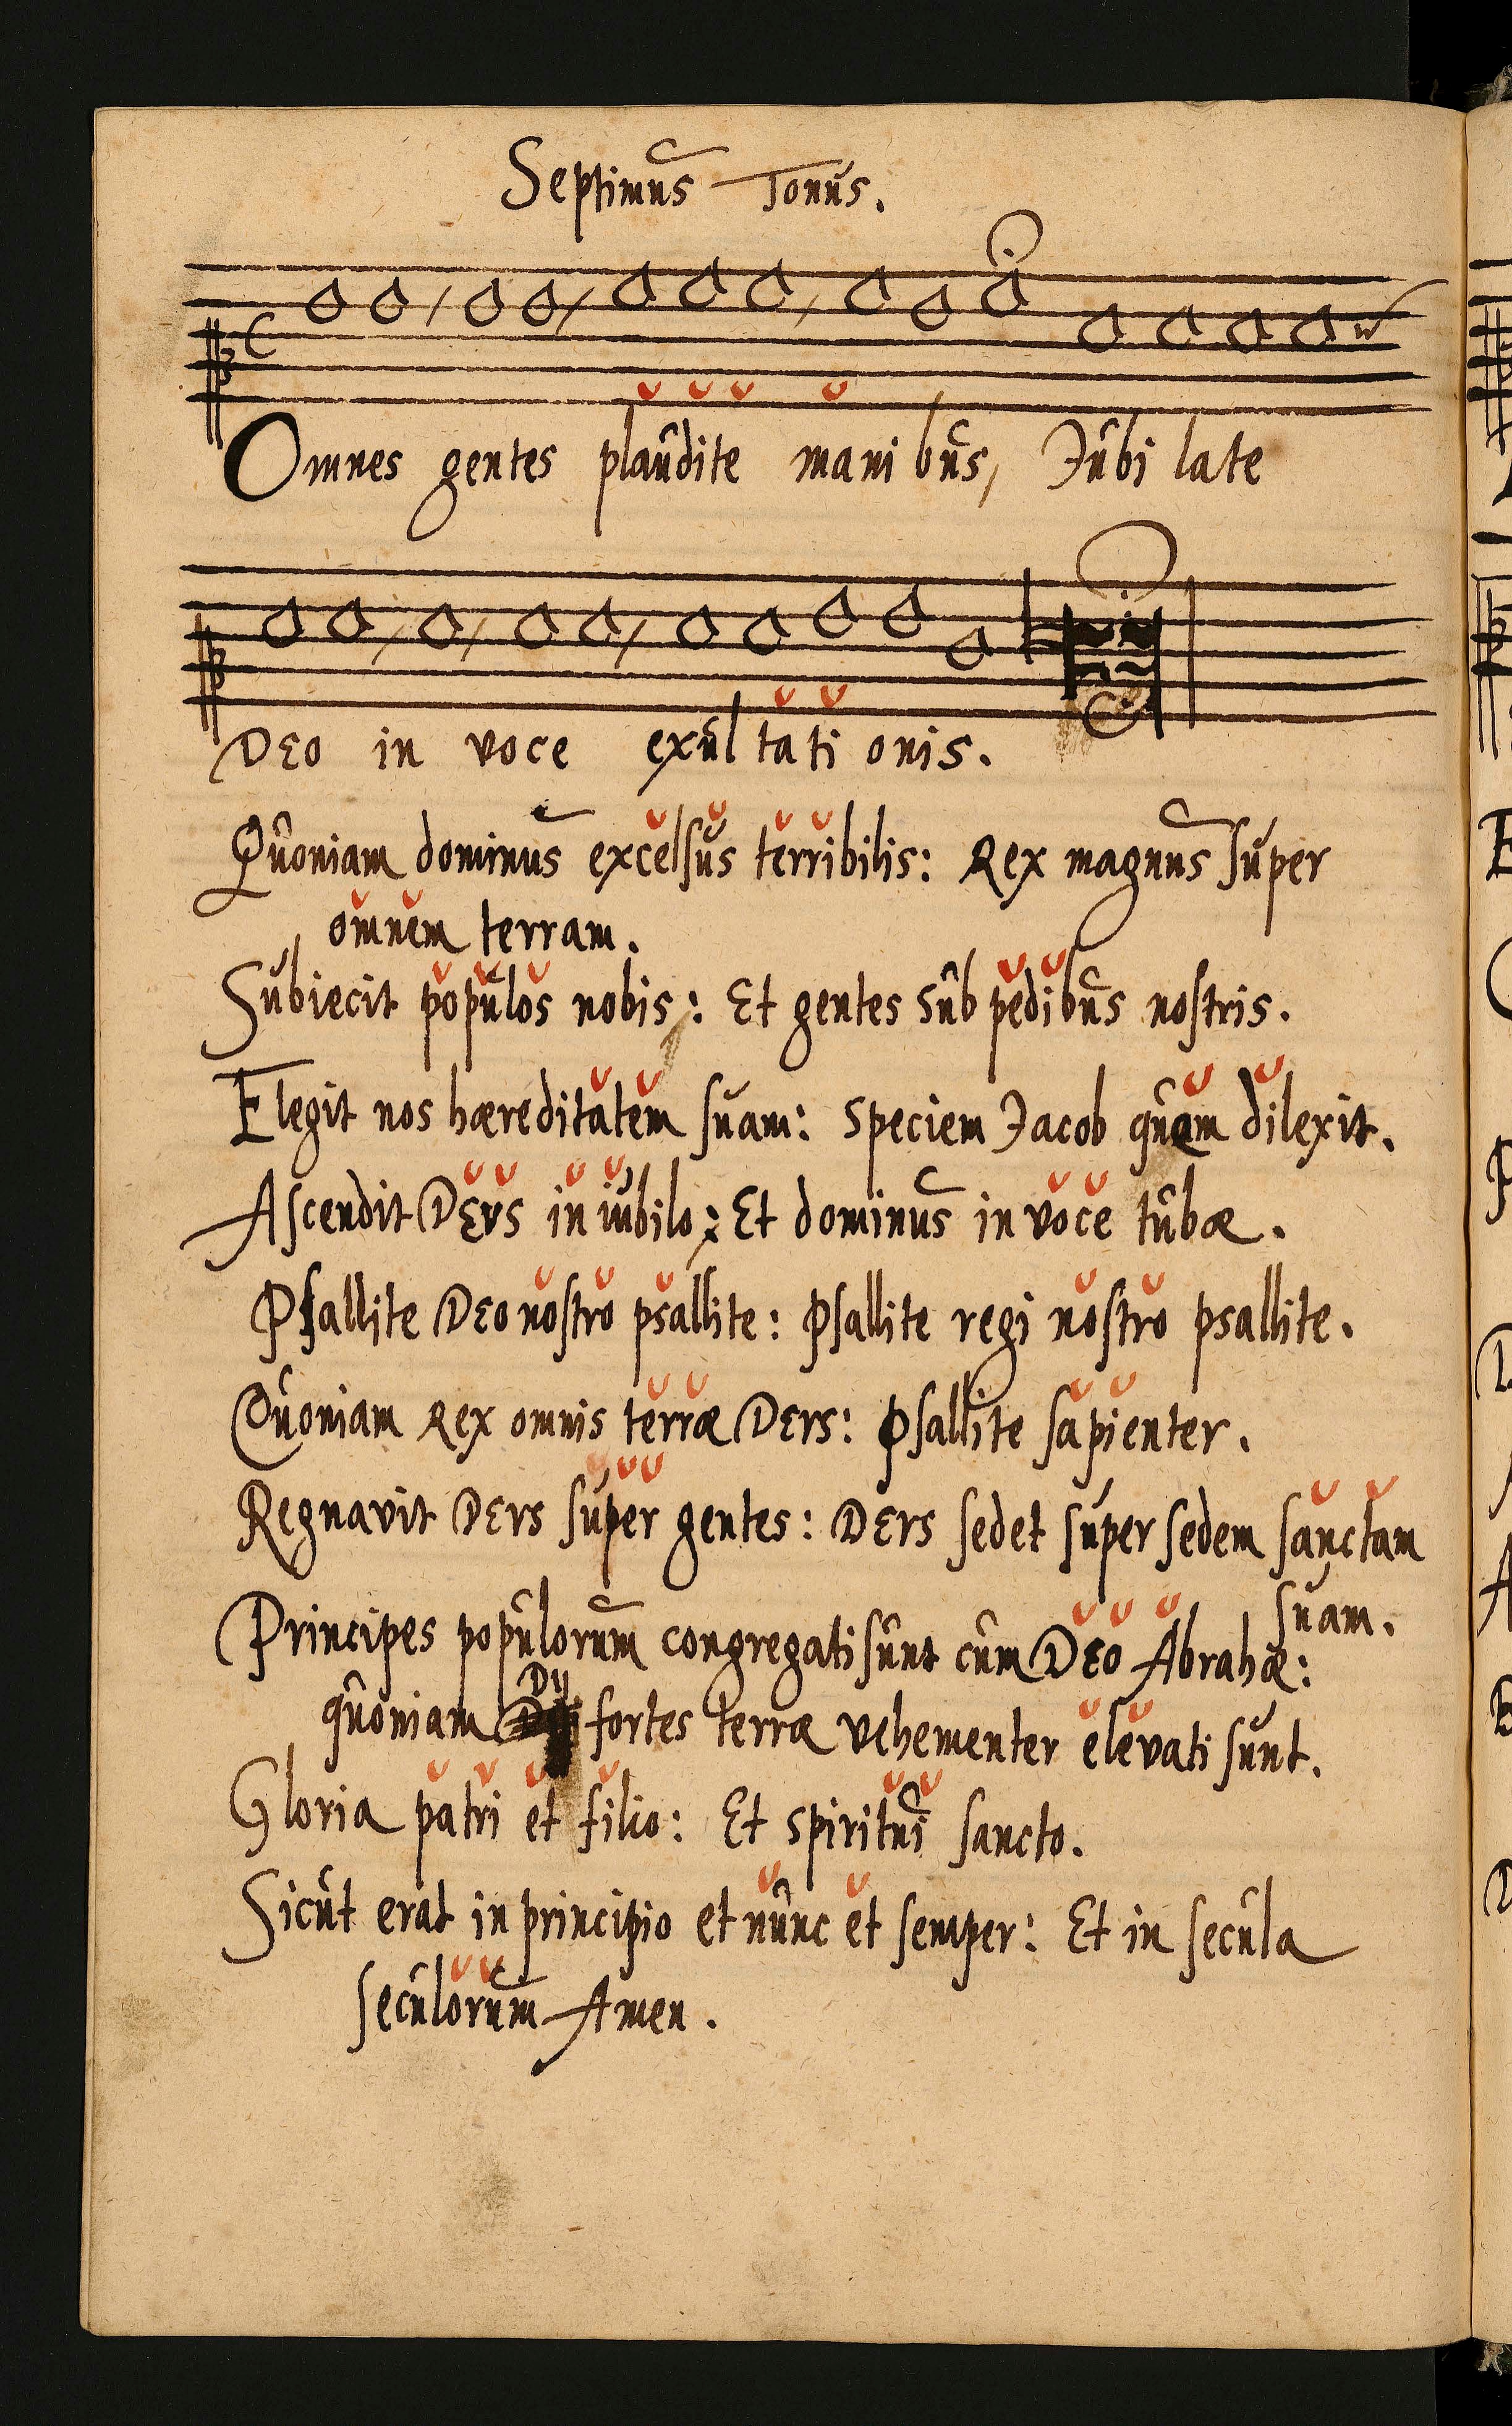 Septimus Tonus.
Omnes gentes plaudite mani bus, Jubi late
DEO in voce exul tati onis.
Quoniam dominus excelsus terribilis: Rex magnus super
omnem terram.
Subiecit populos nobis: Et gentes sub pedibus nostris.
Elegit nos hæreditatem suam: Speciem Jacob quam dilexit.
Ascendit DEVS in iubilo: Et dominus in voce tubæ.
Psallite DEO nostro psallite: Psallite regi nostro psallite.
Quoniam Rex omnis terræ DEVS: Psallite sapienter.
Regnavit DEVS super gentes: DEVS sedet super sedem sanctam
suam.
Principes populorum congregati sunt cum DEO Abrahæ:
quoniam Dij fortes terræ vehementer elevati sunt.
Gloria patri et filio: Et spiritui sancto.
Sicut erat in principio et nunc et semper: Et in secula
seculorum Amen.